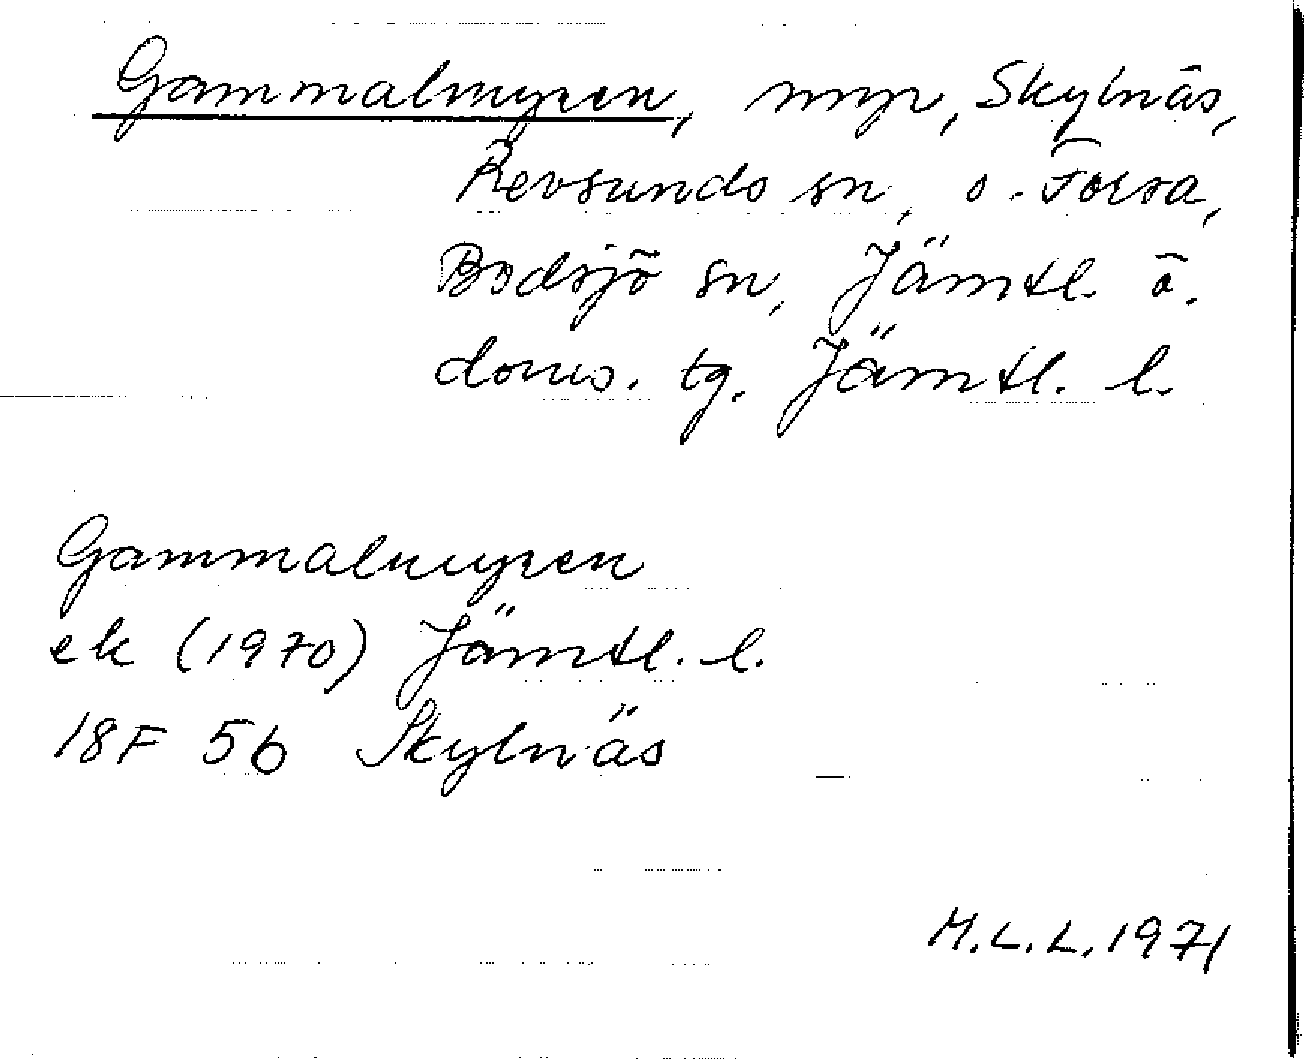 Gammalmyren, myr, Skylnäs,
Revsunds sn, o. Forsa,
Bodsjö sn, Jämtl. ö.
doms. tg. Jämtl. l.
Gammalmyren
ek (1970) Jämtl. l.
18F 5b Skylnäs
M.L.L. 1971